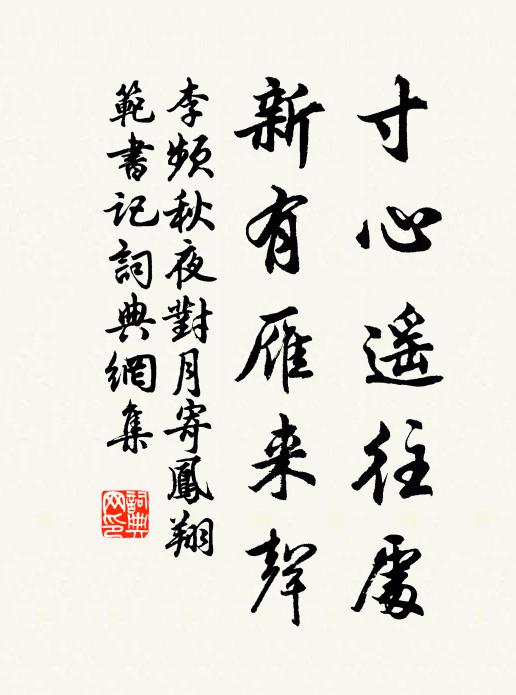 寸心遥往處
新有雁来聲
李頻秋夜對月寄鳳翔
範書記詞典網集
詞典
网印